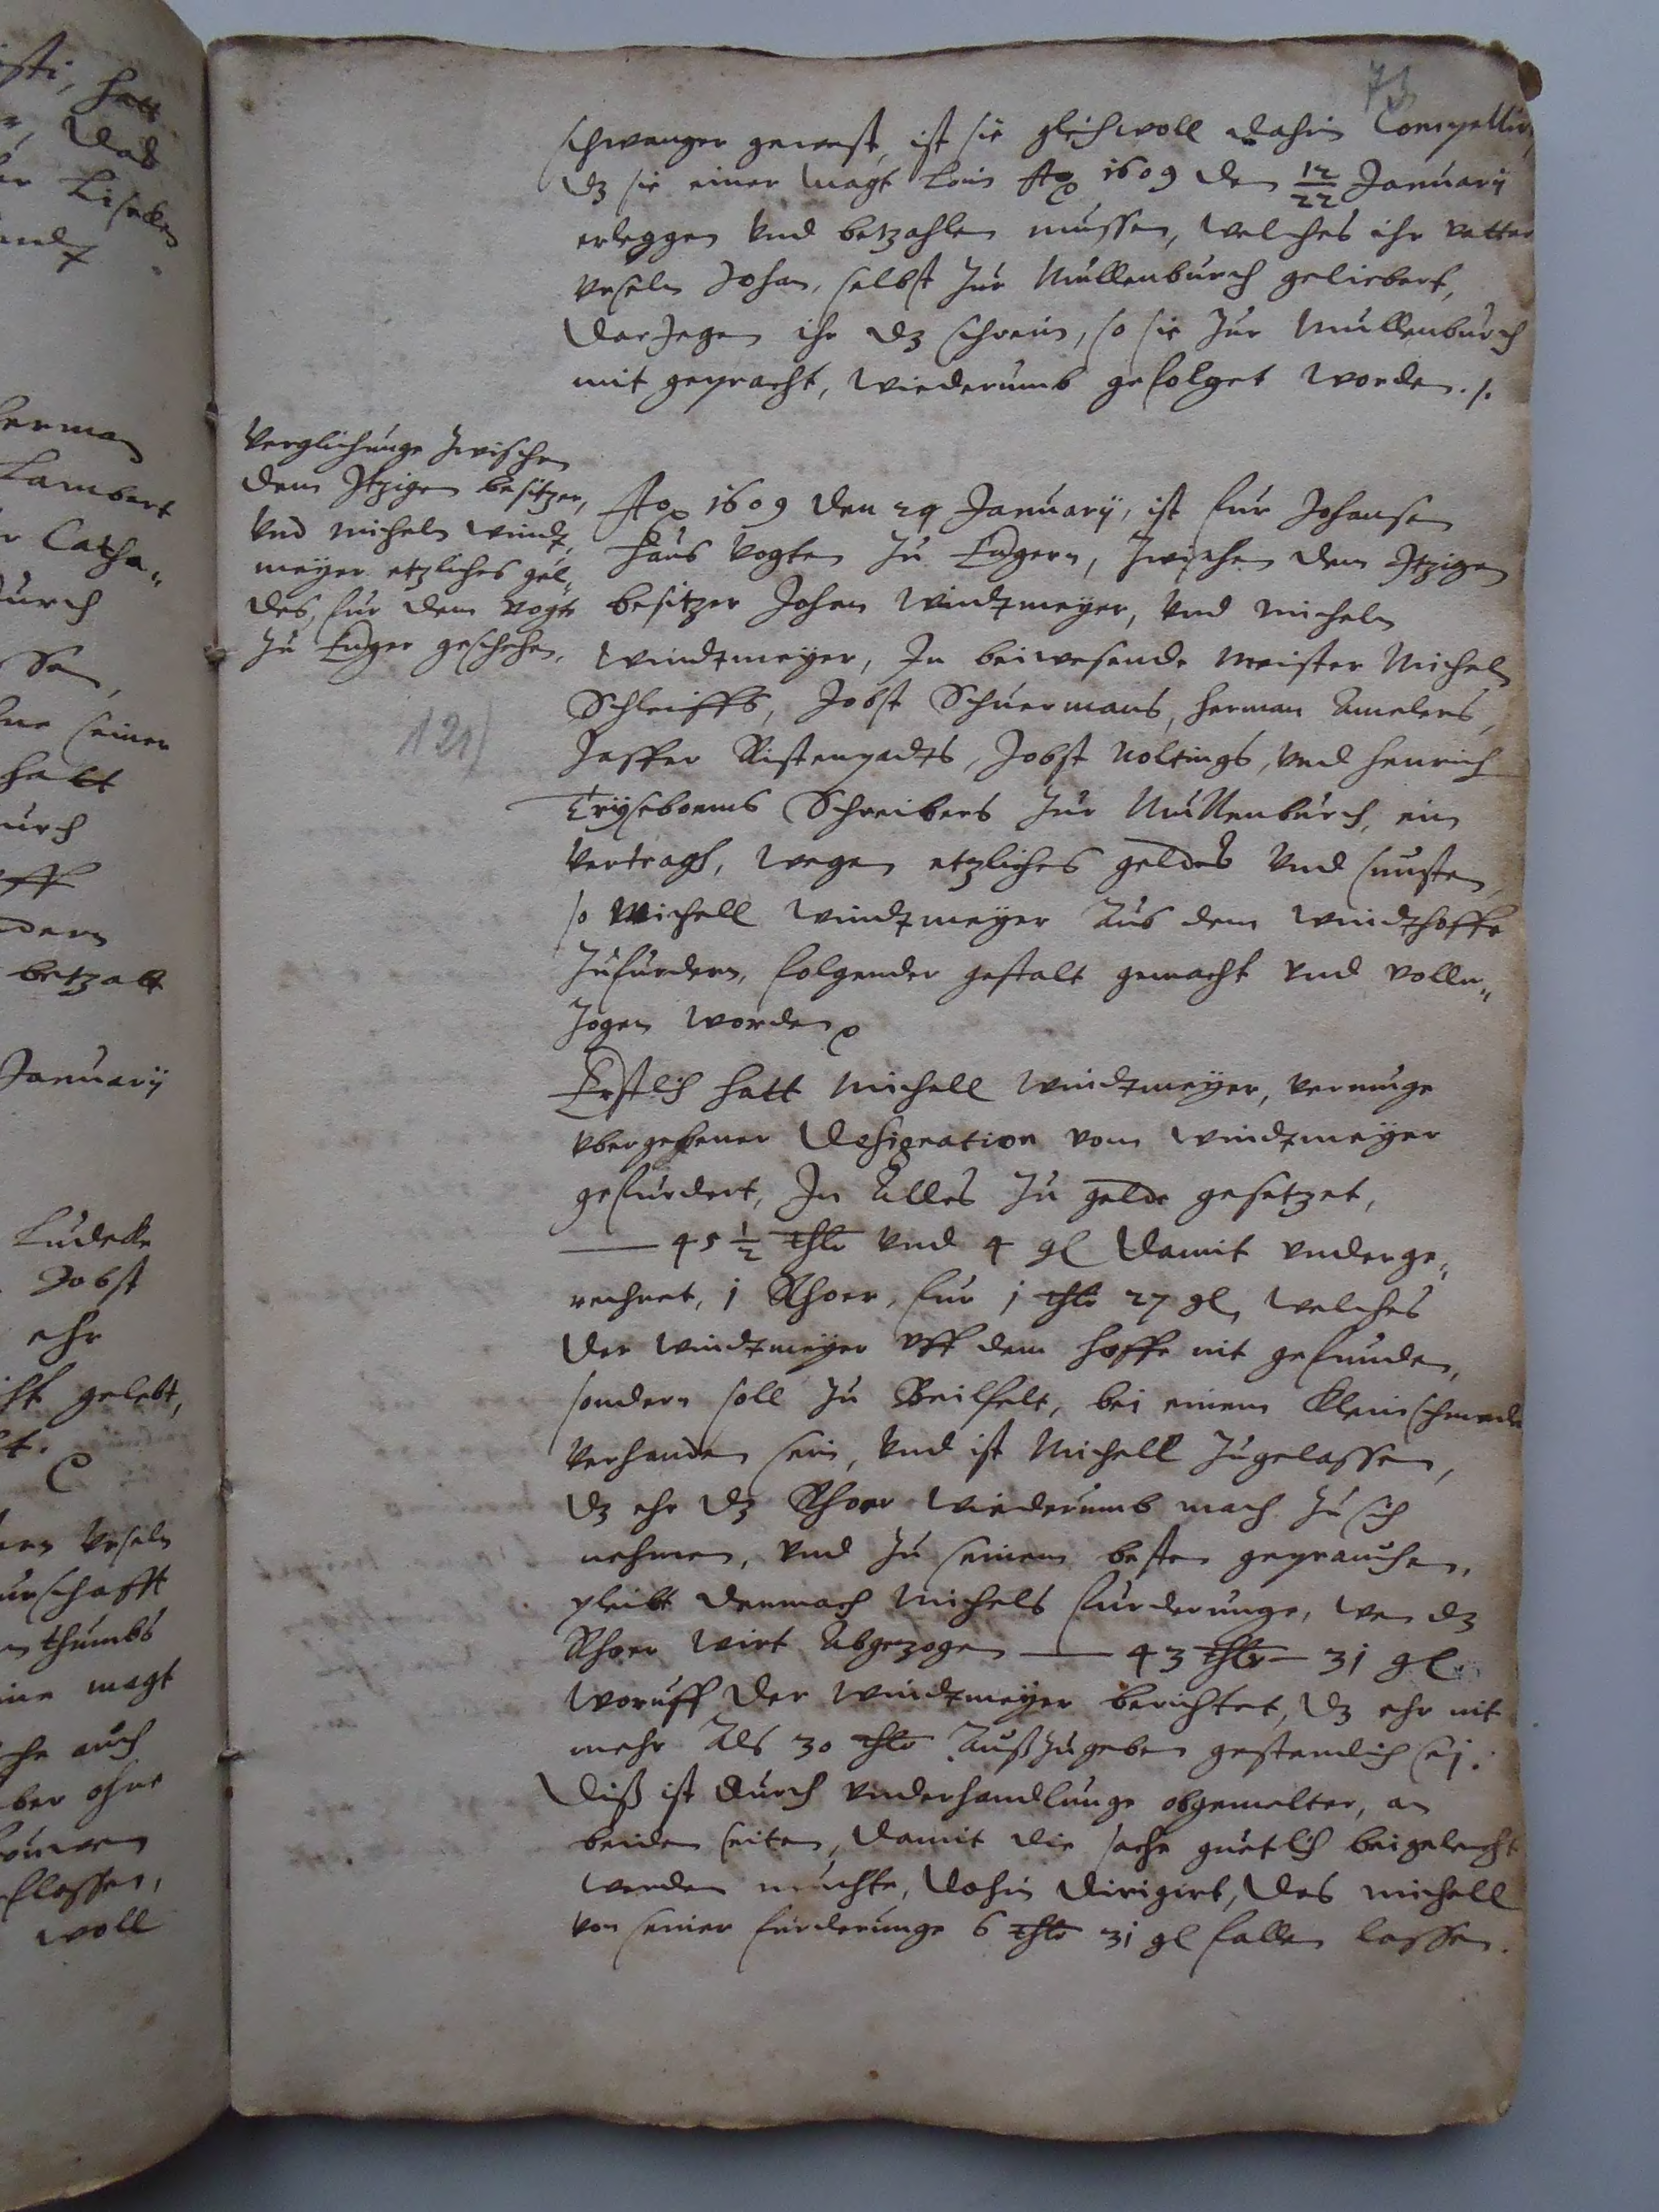 isti, hatt
das
er Lisecken
73
schwanger gewest, ist sie gleichwoll dahin Compellirt
dz sie einer Magt loin Ao 1609 den 12/22 January
erleggen vnd betzahlen mussen, welches ihr vatter
Vrseln Johan, selbst zur Mullenburch geliebert,
darjegen ihr dz schrein, so sie zur Mullenburch
mit gepracht, wiederumb gefolget worden ./.
Verglichunge zwischen
dem Itzigen besitzer,
vnd Micheln Windt„
meyer etzliches gel„
des, fur dem vogte
zu Enger geschehen.
121)
Ao 1609 den 29 January, ist fur Johansen
Haus vogten zu Engern, zwischen dem Itzigen
besitzer Johan Windtmeyer, vnd Micheln
Windtmeyer, In beiwesende Meister Micheln
Schleiffs, Jobst Schuermans, Herman Amelers,
Jasper Ristenpadts, Jobst Noltings, vnd Henrich
Schreibers zur Mullenburch, ein
Vertragh, wegen etzliches geldes vnd sunsten,
so Michell Windtmeyer aus dem Windthoffe
zufurdern, folgender gestalt gemacht vnd vollen„
zogen worden
Erstlich hatt Michell Windtmeyer, vermuge
vbergebener Designation vom Windtmeyer
gefurdert, In alles zu gelde gesetzet,
— 45 ½ thlr vnd 4 gl damit vnderge„
rechnet, 1 Rhoer, fur 1 thlr 27 gl, welches
der Windtmeyer vff dem hoffe nit gefunden,
sondern soll zu Beilfelt, bei einem Kleinschmede
verhanden sein, vnd ist Michell zugelassen,
dz ehr dz Rhoer wiederumb mach zu sich
nehmen, vnd zu seinem besten geprauchen,
pleibt demnach Michels furderunge, wen dz
Rhoer wirt abgezogen — 43 thlr — 31 gl.
Woruff der Windtmeyer berichtet, dz ehr nit
mehr als 30 thlr außzugeben gestendlich sej.
Diß ist durch vnderhandlunge obgemelter, an
beiden seiten, damit die sache guetlich beigelecht
werden muchte, dahin dirigirt, das Michell
von seiner furderunge 6 thlr 31 gl fallen lassen.
herman
Lambert
Catha„
durch
seiner
hatt
durch
betzalt
January
Ludecke
Jobst
ehr
gelebt,
Vrseln
thumbs
magt
auch
ohne
woll